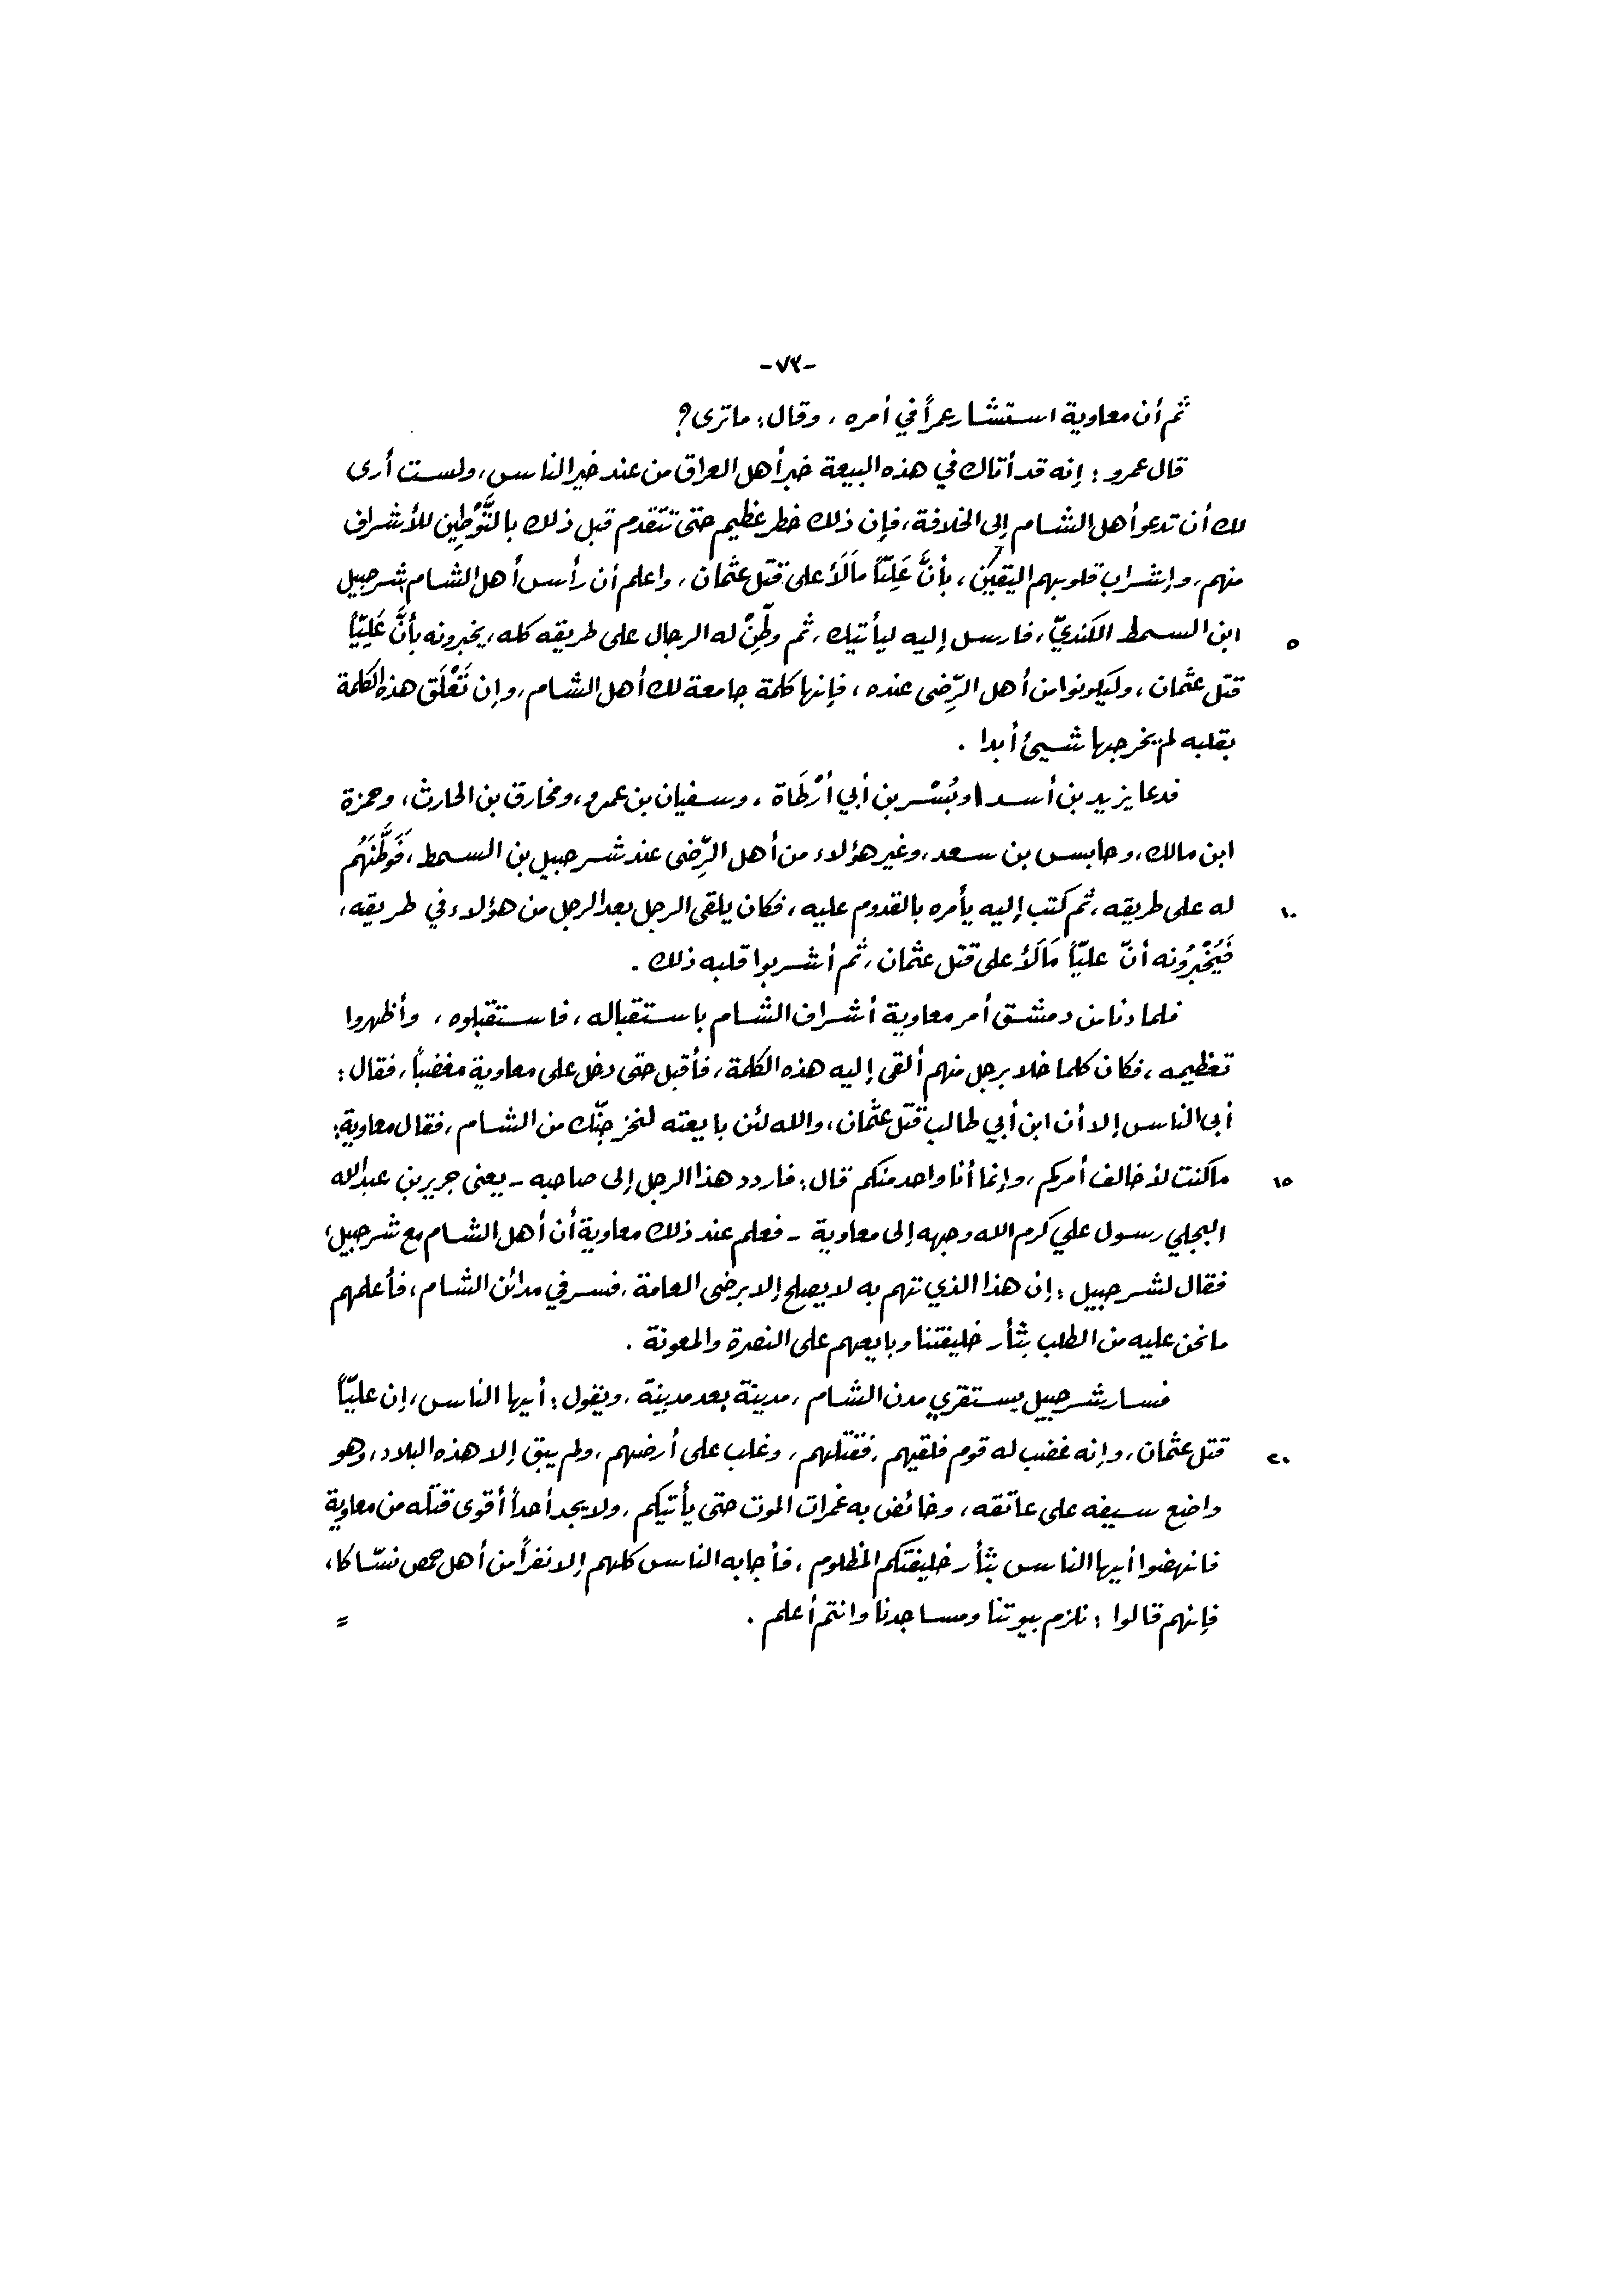 -٧٣-
ثم أن معاوية استشار عمراً في أمره ، وقال : ما ترى ؟
قال عمرو : إنه قد أتاك في هذه البيعة خبر أهل العراق من عند خير الناس ، ولست أرى
لك أن تدعو أهل الشام إلى الخلافة ، فإن ذلك خطر عظيم حتى تتقدم قبل ذلك بالتَّوْطِين للأشراف
منهم ، وإشراب قلوبهم اليقين ، بأنَّ عَلِيّاً مَالَأَ على قتل عثمان ، واعلم أن رأس أهل الشام شرحبيل
٥ ابن السمط الكنديّ ، فارسل إليه ليأتيك ، ثم وطِّنْ له الرجال على طريقه كله ، يخبرونه بأنَّ عَلِيّاً
قتل عثمان ، وليكونوا من أهل الرِّضى عنده ، فإنها كلمة جامعة لك أهل الشام ، وإن تَعْلَق هذه الكلمة
بقلبه لم يخرجها شيئ أبدا .
فدعا يزيد بن أسد او بُسْر بن أبي أرْطَاة ، وسفيان بن عمرو ، ومخارق بن الحارث ، وحمزة
ابن مالك ، وحابس بن سعد ، وغير هؤلاء من أهل الرِّضى عند شرحبيل بن السمط ، فَوَطَّنَهُم
١٠ له على طريقه ، ثم كتب إليه يأمره بالقدوم عليه ، فكان يلقى الرجل بعد الرجل من هؤلاء في طريقه ،
فَيُخْبِرُونه أنّ عليّاً مَالَأَ على قتل عثمان ، ثم أشربوا قلبه ذلك .
فلما دنا من دمشق أمر معاوية أشراف الشام باستقباله ، فاستقبلوه ، وأظهروا
تعظيمه ، فكان كلما خلا برجل منهم ألقى إليه هذه الكلمة ، فأقبل حتى دخل على معاوية مغضباً ، فقال :
أبى الناس إلا أن ابن أبي طالب قتل عثمان ، والله لئن بايعته لنخرجنّك من الشام ، فقال معاوية :
١٥ ما كنت لأخالف أمركم ، وإنما أنا واحد منكم قال : فاردد هذا الرجل إلى صاحبه - يعني جرير بن عبدالله
البجلي رسول علي كرم الله وجهه إلى معاوية - فعلم عند ذلك معاوية أن أهل الشام مع شرحبيل ،
فقال لشرحبيل : إن هذا الذي تهم به لا يصلح إلا برضى العامة ، فسر في مدائن الشام ، فأعلمهم
ما نحن عليه من الطلب بثأر خليفتنا وبايعهم على النصرة والمعونة .
فسار شرحبيل يستقري مدن الشام ، مدينة بعد مدينة ، ويقول : أيها الناس ، إن عليّاً
٢٠ قتل عثمان ، وإنه غضب له قوم فلقيهم ، فقتلهم ، وغلب على أرضهم ، ولم يبق إلا هذه البلاد ، وهو
واضع سيفه على عاتقه ، وخائض به غمرات الموت حتى يأتيكم ، ولا يجد أحداً أقوى قتله من معاوية
فانهضوا أيها الناس بثأر خليفتكم المظلوم ، فأجابه الناس كلهم إلا نفراً من أهل حمص نسّاكا ،
فإنهم قالوا : نلزم بيوتنا ومساجدنا وانتم أعلم . =